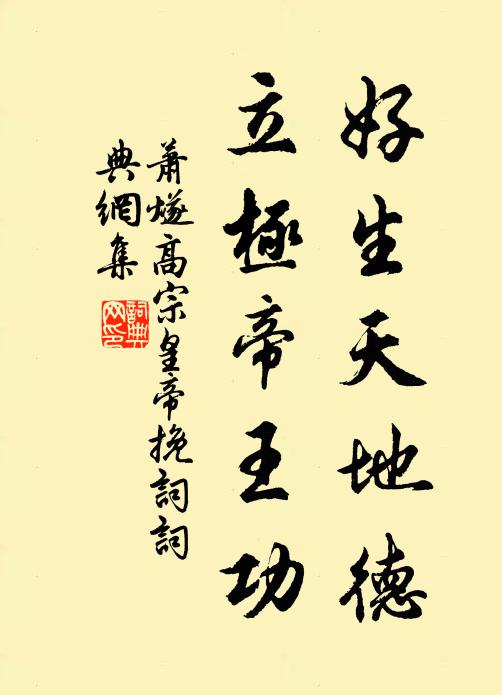 好生天地德
立極帝王功
蕭燧高宗皇帝挽詞詞
典網集
詞典
网印